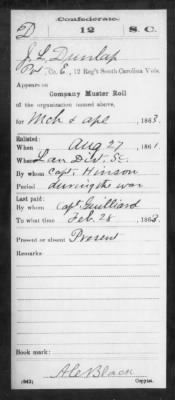 Confederate.
D 12 S.C.
J. L. Dunlap
Pvt, Co. E, 12 Reg't South Carolina Vols.
Appears on
Company Muster Roll
of the organization named above,
for Mch & Apl, 1863.
Enlisted:
When Aug 27, 1861
Where Lan Dist. SC.
By whom Capt. Hinson
Period during the war
Last paid:
By whom Capt Guilliard
To what time Feb. 28, 1863.
Present or absent Present
Remarks:
Book mark:
(642) Copyist.